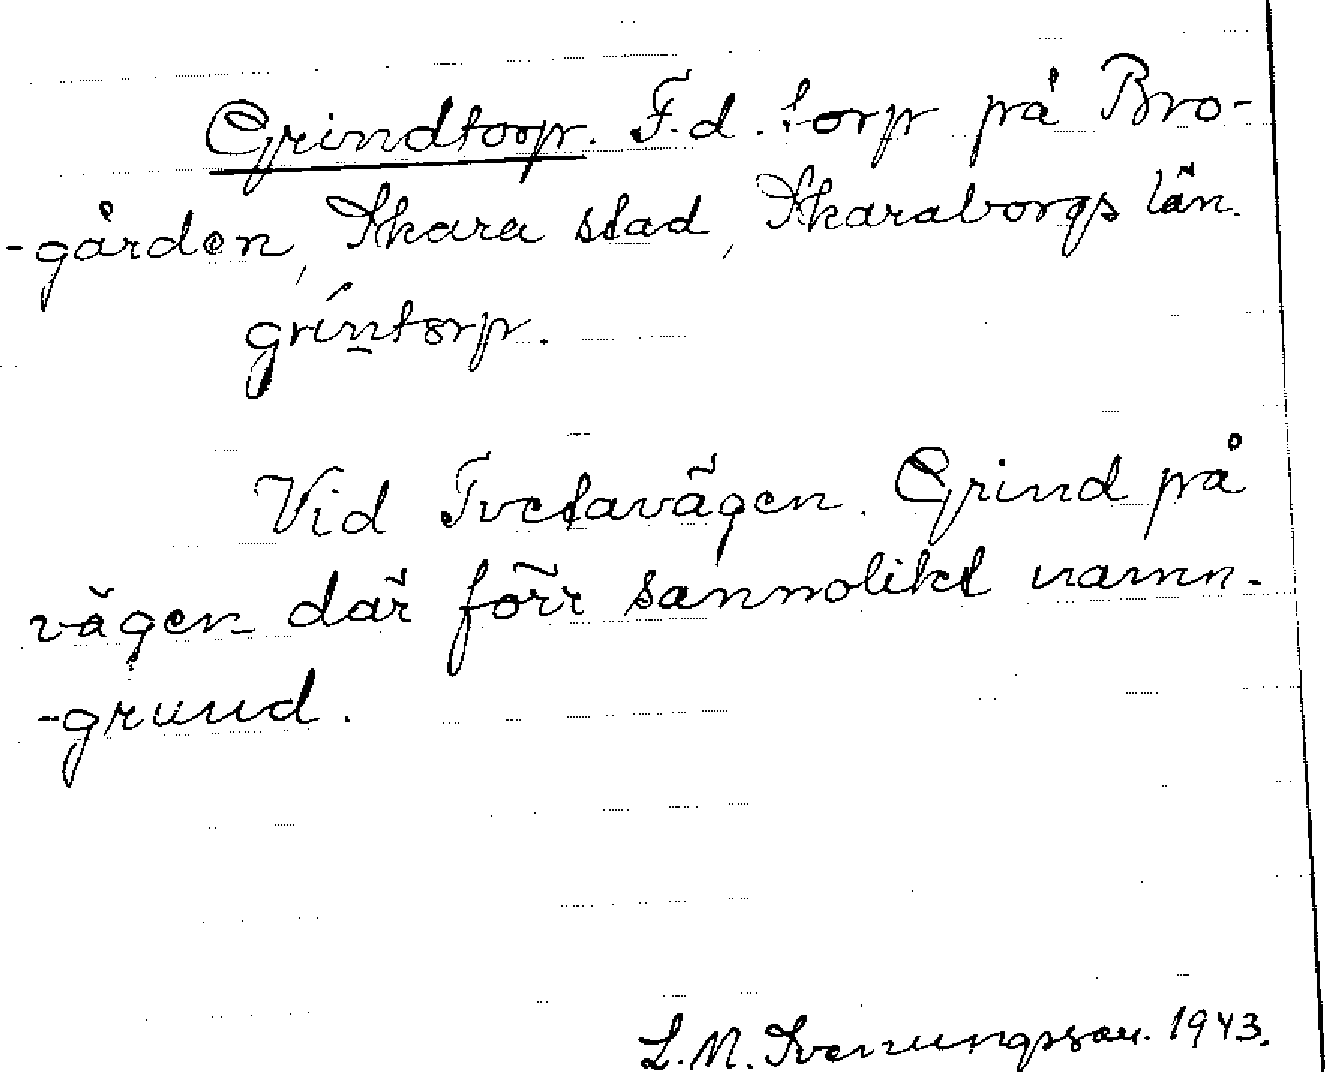 Grindtorp. F.d. torp på Bro-
-gården, Skara stad, Skaraborgs län.
gríntorp.
Vid Tvetavägen. Grind på
vägen där förr sannolikt namn-
-grund.
L.M. Svenungsson. 1943.